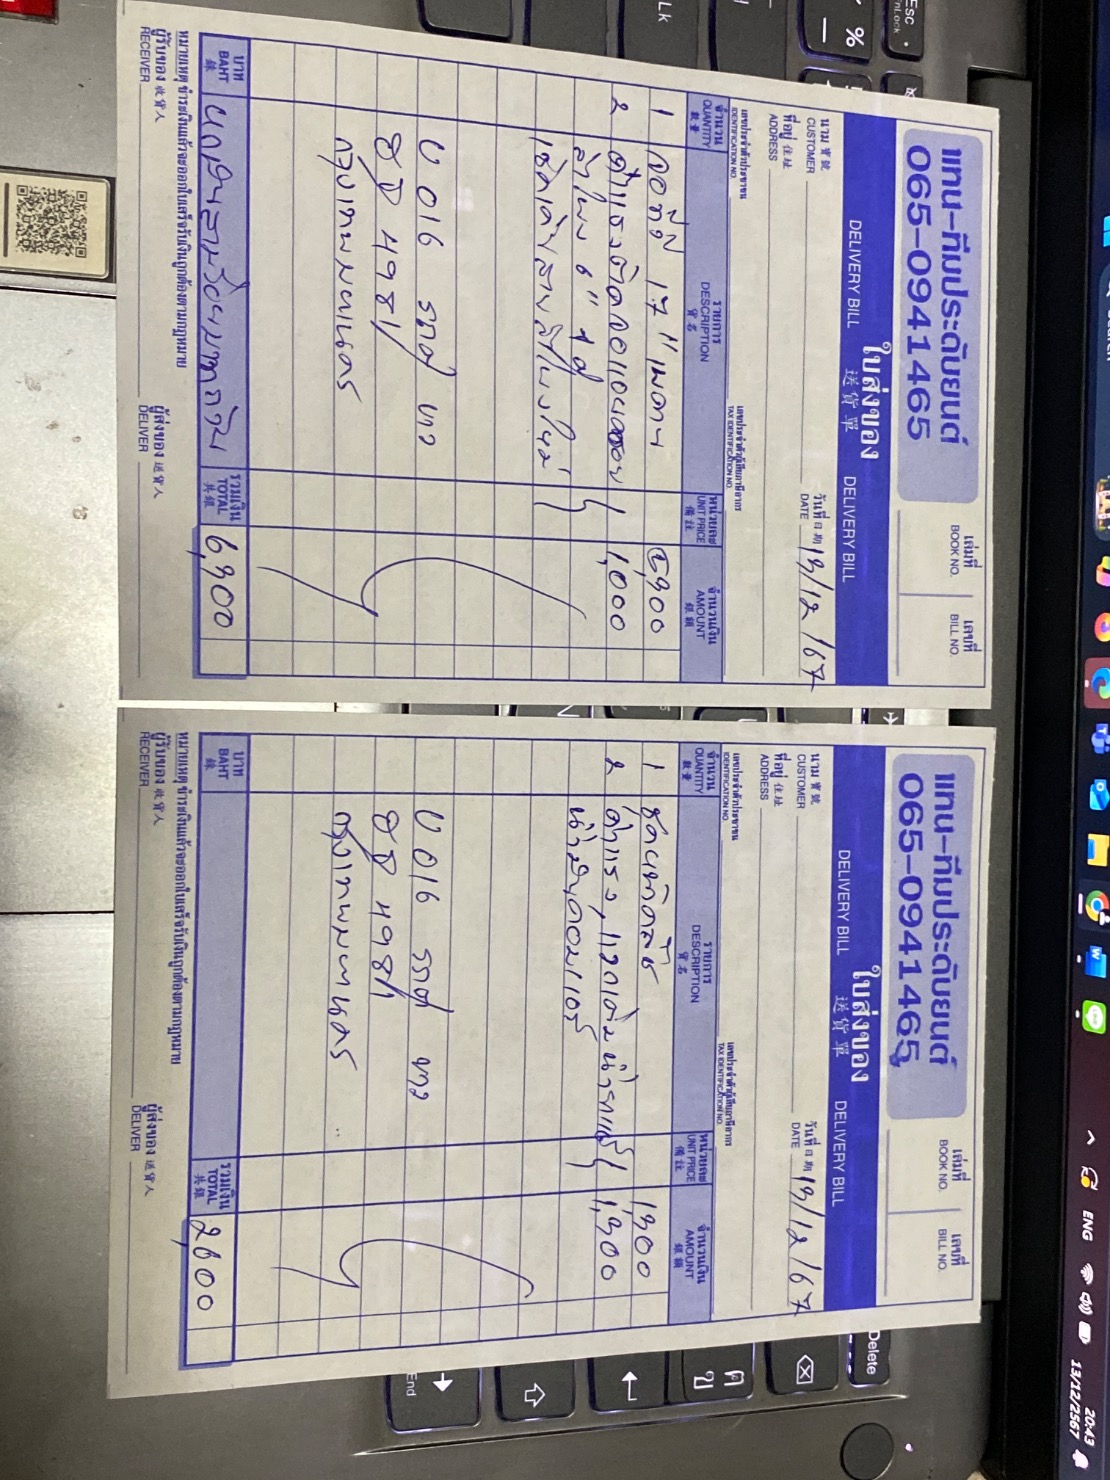 แทน-ทีมประดับยนต์
065-0941465
เล่มที่
BOOK NO.
เลขที่
BILL NO.
DELIVERY BILL
ใบส่งของ
送貨單
DELIVERY BILL
นาม 寶號
CUSTOMER
วันที่ 日期
DATE
13/12/67
ที่อยู่ 住址
ADDRESS
เลขประจำตัวประชาชน
IDENTIFICATION NO.
เลขประจำตัวผู้เสียภาษีอากร
TAX IDENTIFICATION NO.
จำนวน
QUANTITY
數量
รายการ
DESCRIPTION
貨名
หน่วยละ
UNIT PRICE
備註
จำนวนเงิน
AMOUNT
銀額
1 จอทีวี 17" เพดาน 5,300
2 ค่าแรงติดจอ 1,000
ลำโพง 6" 1 คู่
ใหม่
รถตู้ ขาว
ฮฉ 4981
กรุงเทพมหานคร
บาท
BAHT
銖
หกพันสามร้อยบาทถ้วน
รวมเงิน
TOTAL
共銀
6,300
หมายเหตุ ชำระเงินแล้วจะออกใบเสร็จรับเงินถูกต้องตามกฎหมาย
ผู้รับของ 收貨人
RECEIVER
ผู้ส่งของ 送貨人
DELIVER
แทน-ทีมประดับยนต์
065-0941465
เล่มที่
BOOK NO.
เลขที่
BILL NO.
DELIVERY BILL
ใบส่งของ
送貨單
DELIVERY BILL
นาม 寶號
CUSTOMER
วันที่ 日期
DATE
13/12/67
ที่อยู่ 住址
ADDRESS
เลขประจำตัวประชาชน
IDENTIFICATION NO.
เลขประจำตัวผู้เสียภาษีอากร
TAX IDENTIFICATION NO.
จำนวน
QUANTITY
數量
รายการ
DESCRIPTION
貨名
หน่วยละ
UNIT PRICE
備註
จำนวนเงิน
AMOUNT
銀額
1 1,300
2 ค่าแรง, 1,300
น้ำมันคอมแอร์
รถตู้ ขาว
ฮฉ 4981
กรุงเทพมหานคร
บาท
BAHT
銖
รวมเงิน
TOTAL
共銀
2,600
หมายเหตุ ชำระเงินแล้วจะออกใบเสร็จรับเงินถูกต้องตามกฎหมาย
ผู้รับของ 收貨人
RECEIVER
ผู้ส่งของ 送貨人
DELIVER
Esc
FnLock
%
Lk
Delete
End
ENG
20:43
13/12/2567